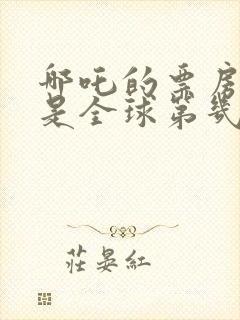 哪吒的票房
是全球第几
莊晏紅